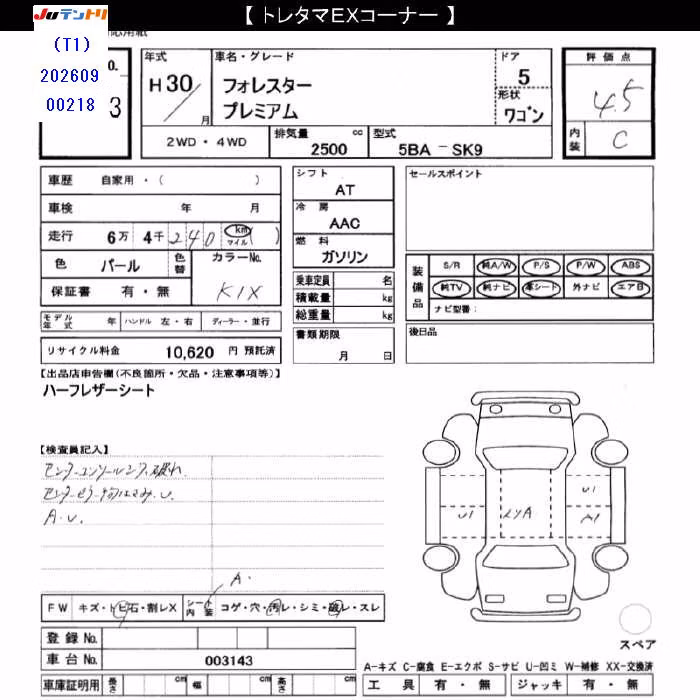 【 トレタマEXコーナー 】
JUテントリ
応用紙
(T1)
202609
00218
No.
3
年式
H30
月
車名・グレード
フォレスター
プレミアム
ドア
5
形状
ワゴン
評価点
4.5
内装
C
2WD・4WD
排気量
cc
2500
型式
5BA － SK9
車歴 自家用・( )
車検 年 月
走行 6万 4千 240 km マイル ( )
色 パール 色替 カラーNo.
保証書 有・無 K1X
モデル年式 年 ハンドル 左・右 ディーラー・並行
リサイクル料金 10,620 円 預託済
シフト
AT
冷房
AAC
燃料
ガソリン
乗車定員 名
積載量 kg
総重量 kg
書類期限
月 日
セールスポイント
装備品
S/R 純A/W P/S P/W ABS
純TV 純ナビ 革シート 外ナビ エアB
ナビ型番:
後日品
【出品店申告欄(不良箇所・欠品・注意事項等)】
ハーフレザーシート
【検査員記入】
A.U.
A.
U1
U1
A1
FW キズ・トビ石・割レX シート内装 コゲ・穴・汚レ・シミ・破レ・スレ
登録 No.
車台 No. 003143
車庫証明用 長さ cm 幅 cm 高さ cm
スペア
A-キズ C-腐食 E-エクボ S-サビ U-凹ミ W-補修 XX-交換済
工具 有・無 ジャッキ 有・無